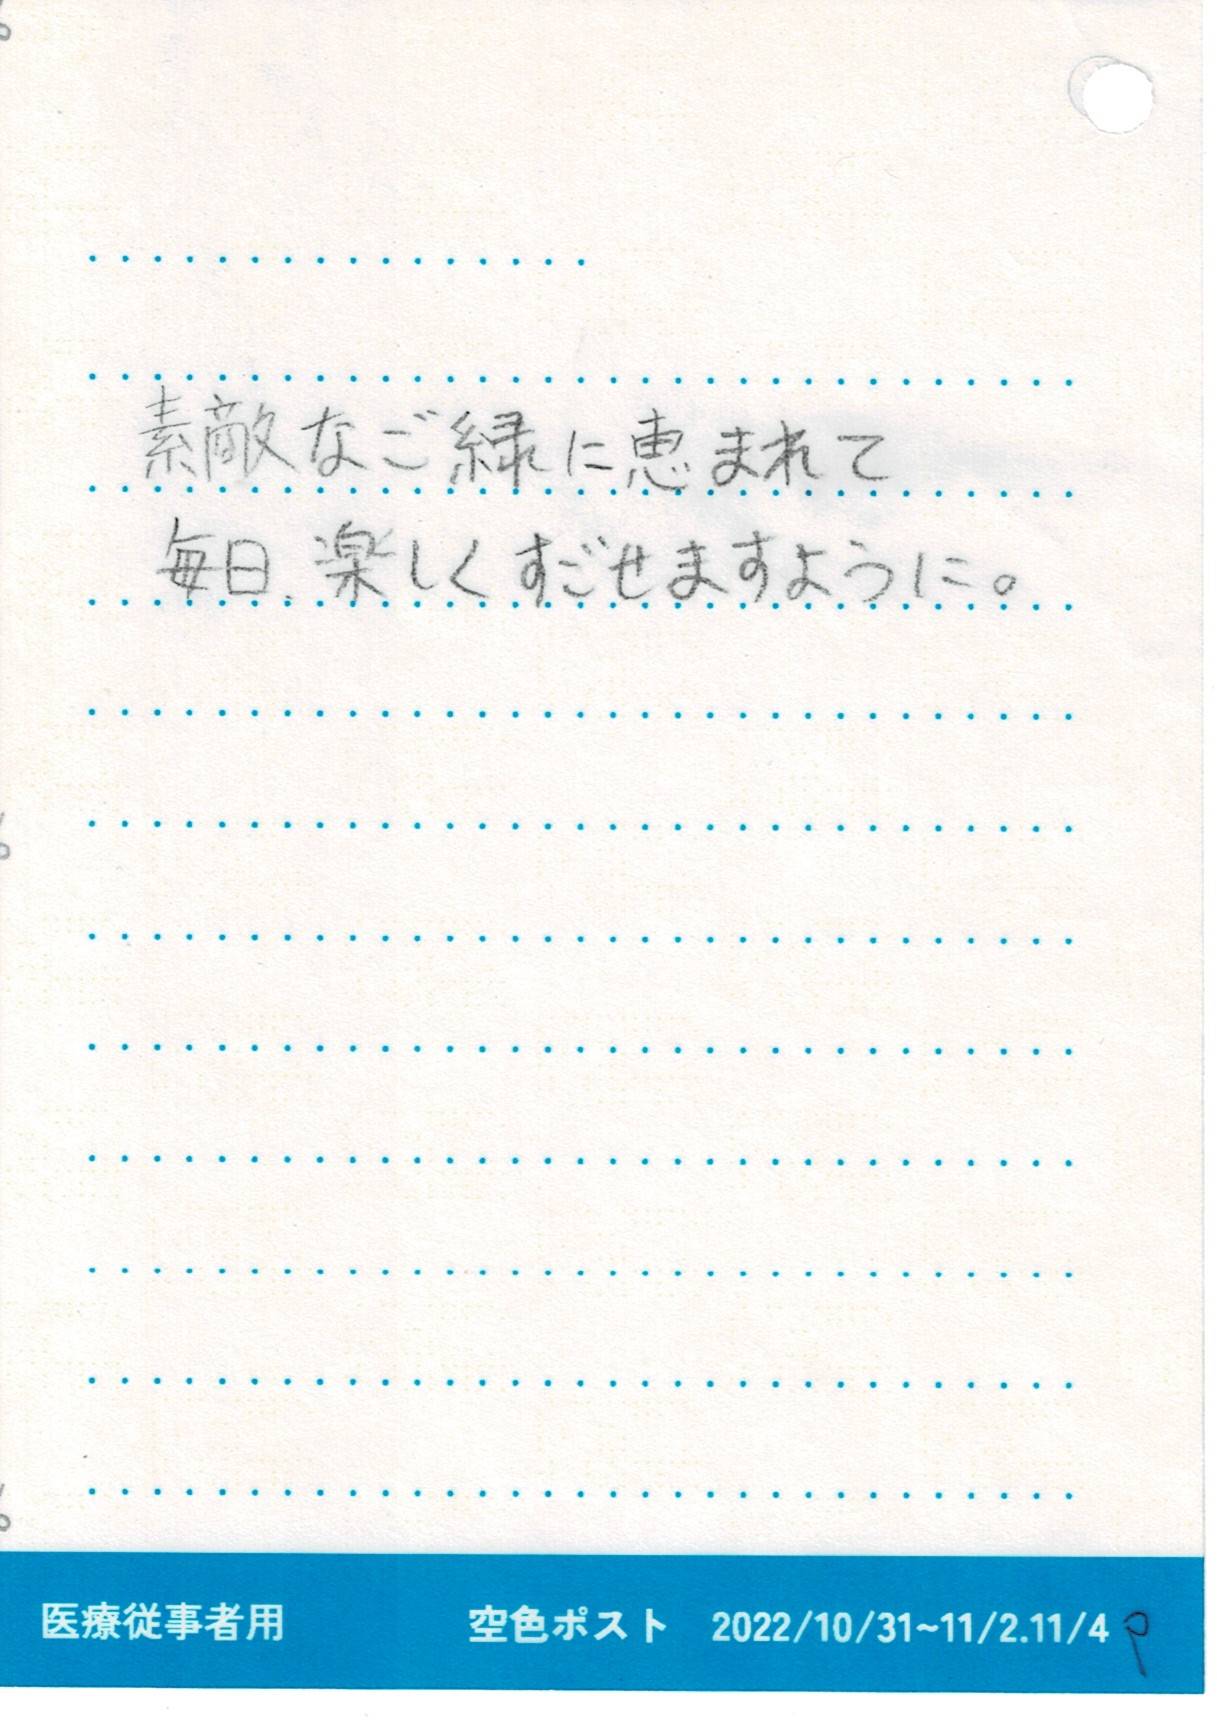 素敵なご縁に恵まれて
毎日、楽しくすごせますように。
医療従事者用 空色ポスト 2022/10/31~11/2.11/4